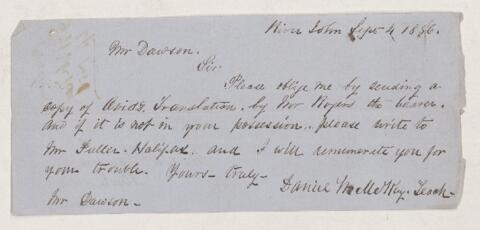 River John Sept 4 1856.
Mr Dawson.
Sir
Please oblige me by sending a
copy of Ovids, Translation, by Mr Rogers the bearer.
And if it is not in your possession, please write to
Mr Fuller. Halifax. and I will remunerate you for
your trouble. Yours truly
Daniel McKay. Teach
Mr Dawson